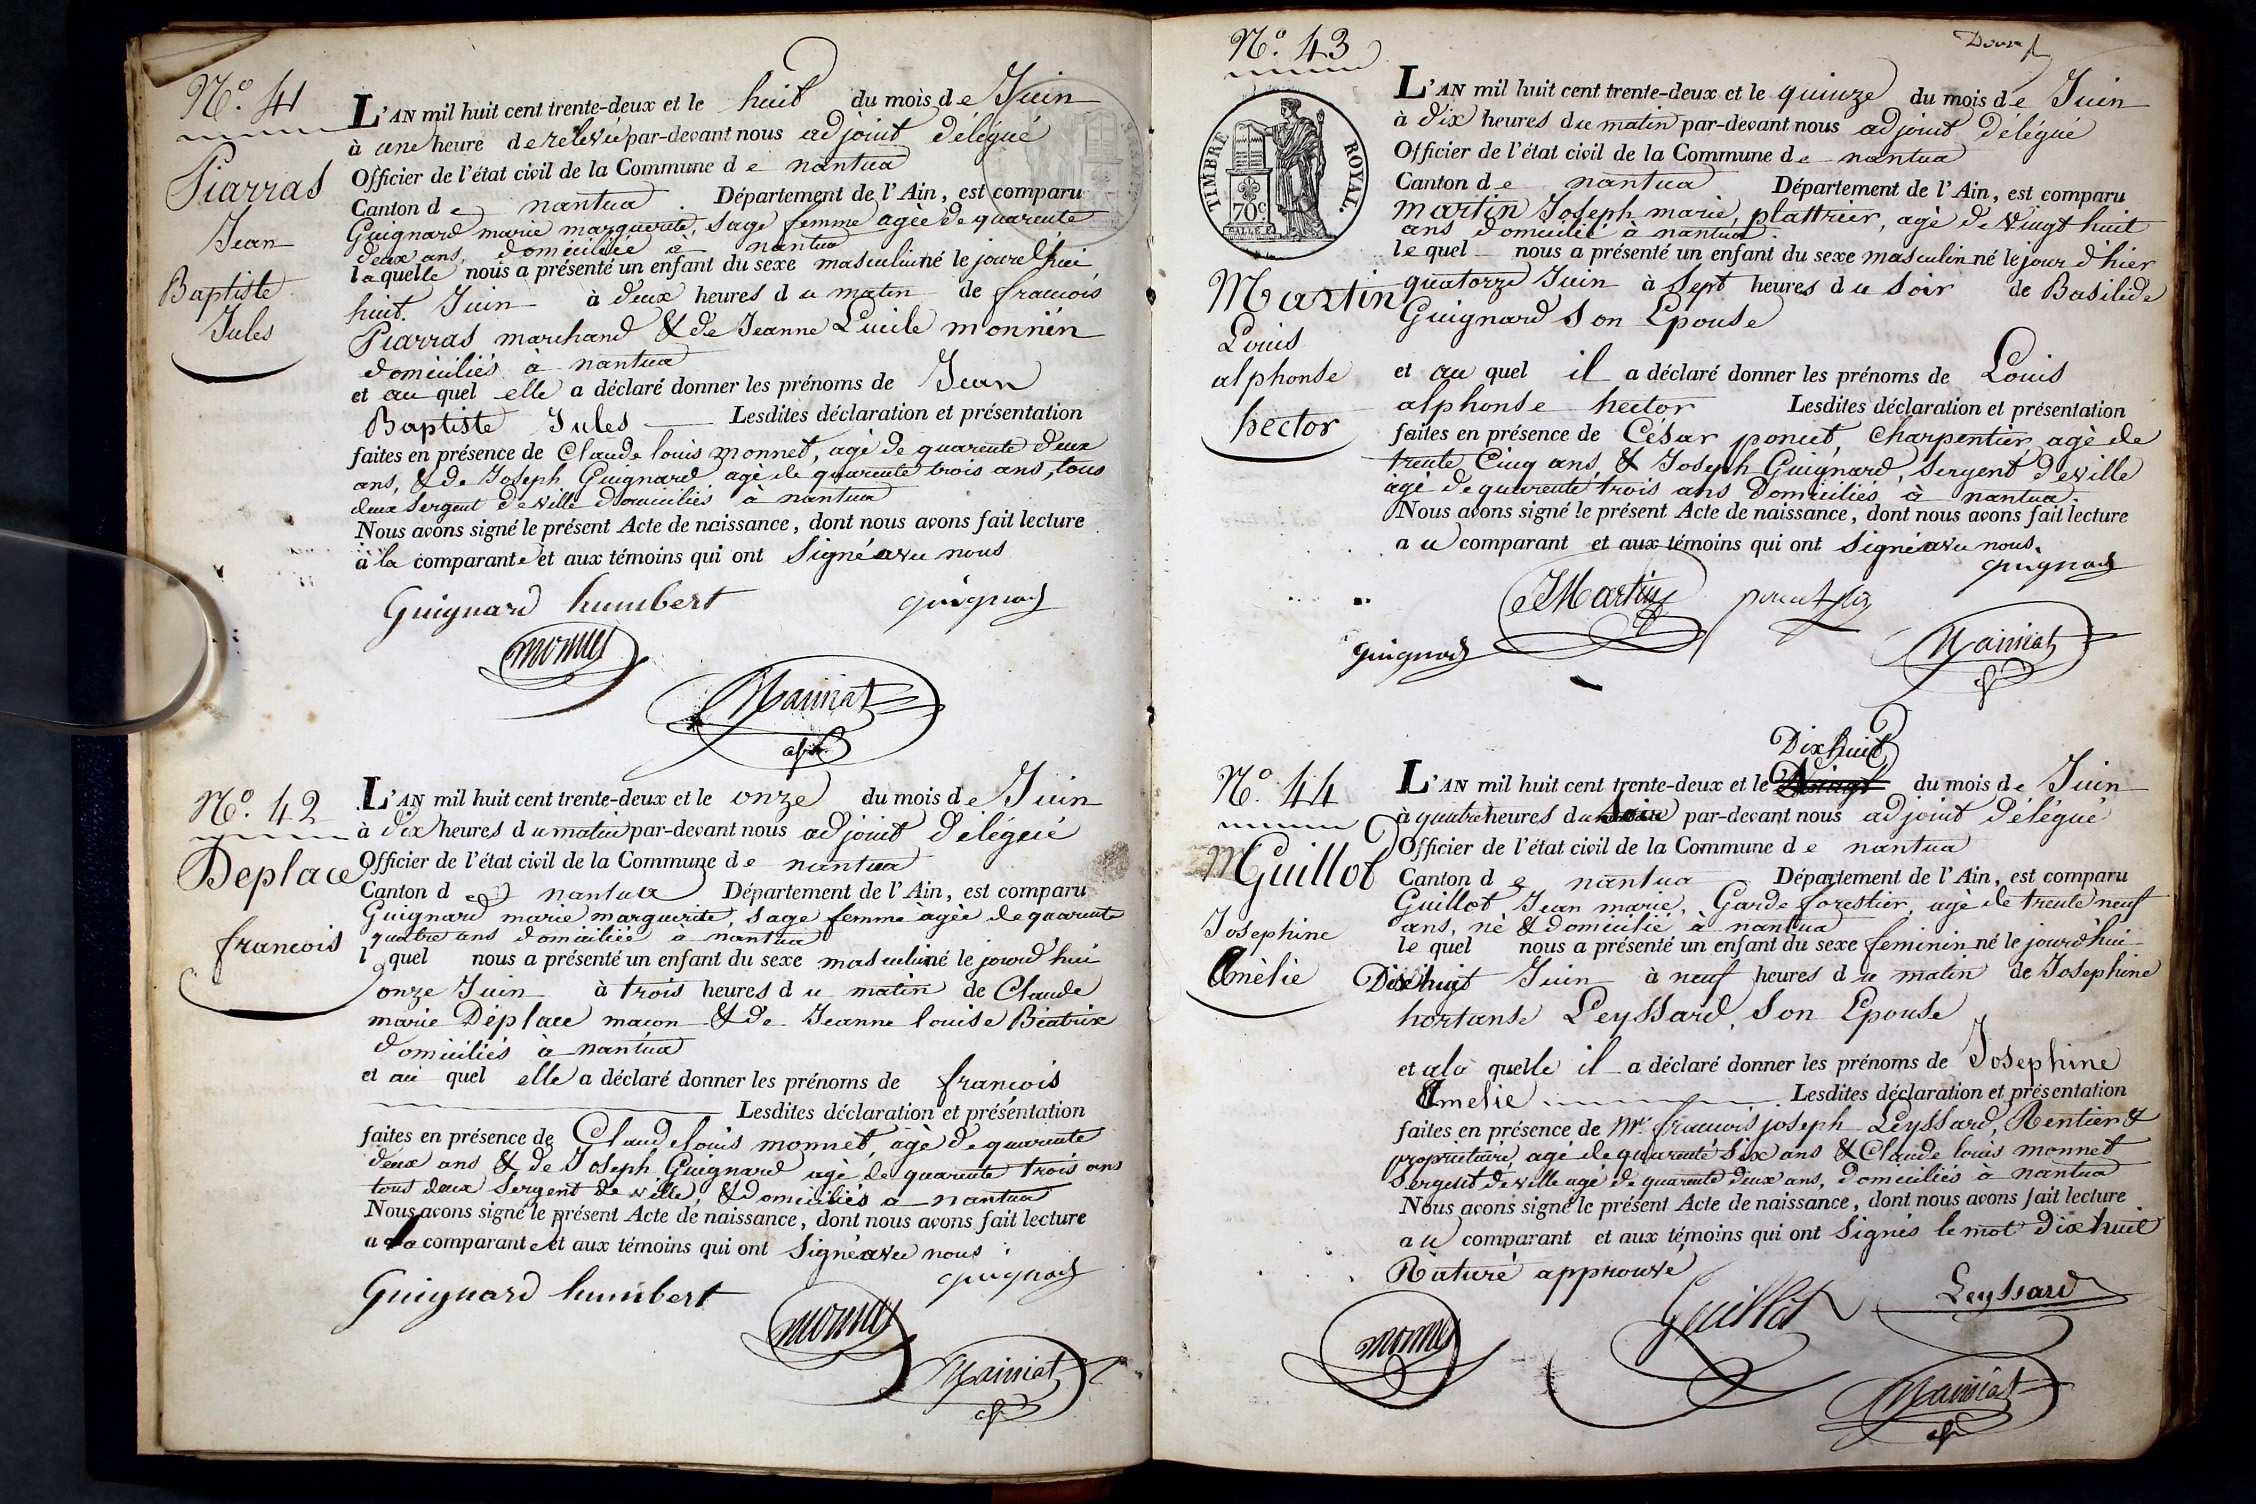 N.° 41
Piarras
Jean
Baptiste
Jules
L'AN mil huit cent trente-deux et le huit du mois de Juin
à une heure de relevé par-devant nous adjoint délégué
Officier de l'état civil de la Commune de nantua
Canton de nantua. Département de l'Ain, est comparu
Guignard marie marguerite, sage femme agée de quarente
deux ans, domiciliée à nantua
laquelle nous a présenté un enfant du sexe masculin né le jourd'hui
huit Juin à deux heures du matin de francois
Piarras marchand & de Jeanne Lucile monnin
domiciliés à nantua
et au quel elle a déclaré donner les prénoms de Jean
Baptiste Jules Lesdites déclaration et présentation
faites en présence de Claude louis monnet, agé de quarente deux
ans, & de Joseph Guignard agé de quarente trois ans, tous
deux Sergent de ville domiciliés à nantua
Nous avons signé le présent Acte de naissance, dont nous avons fait lecture
à la comparante et aux témoins qui ont Signé avec nous
Guignard humbert guignard
monnet
N.° 42
Deplace
francois
L'AN mil huit cent trente-deux et le onze du mois de Juin
à dix heures du matin par-devant nous adjoint délégué
Officier de l'état civil de la Commune de nantua
Canton de nantua Département de l'Ain, est comparu
Guignard marie marguerite, sage femme agée de quarente
quatre ans domiciliée à nantua
l quel nous a présenté un enfant du sexe masculin né le jourd'hui
onze Juin à trois heures du matin de Claude
marie Déplace maçon & de Jeanne louise Béatrix
domiciliés à nantua
et au quel elle a déclaré donner les prénoms de françois
Lesdites déclaration et présentation
faites en présence de Claude louis monnet, agé de quarente
deux ans & de Joseph Guignard agé de quarente trois ans
tous deux Sergent de ville, & domiciliés à nantua
Nous avons signé le présent Acte de naissance, dont nous avons fait lecture
a la comparante et aux témoins qui ont Signé avec nous
Guignard humbert guignard
monnet
N.° 43
TIMBRE ROYAL.
70c
Martin
Louis
alphonse
hector
L'AN mil huit cent trente-deux et le quinze du mois de Juin
à dix heures du matin par-devant nous adjoint délégué
Officier de l'état civil de la Commune de nantua
Canton de nantua Département de l'Ain, est comparu
martin Joseph marie, plattrier, agé de vingt huit
ans domicilié à nantua.
lequel nous a présenté un enfant du sexe masculin né le jour d'hier
quatorze Juin à Sept heures du Soir de Basilide
Guignard Son Epouse
et au quel il a déclaré donner les prénoms de Louis
alphonse hector Lesdites déclaration et présentation
faites en présence de César poncet, Charpentier agé de
trente Cinq ans, & Joseph Guignard, Sergent de ville
agé de quarente trois ans domiciliés à nantua.
Nous avons signé le présent Acte de naissance, dont nous avons fait lecture
au comparant et aux témoins qui ont Signé avec nous.
guignard
JMartin
guignard
N.° 44
Guillot
Josephine
Amèlie
Dix huit
L'AN mil huit cent trente-deux et le du mois de Juin
à quatre heures du Soir par-devant nous adjoint délégué
Officier de l'état civil de la Commune de nantua
Canton de nantua Département de l'Ain, est comparu
Guillot Jean marie, Garde forestier, agé de trente neuf
ans, né & domicilié à nantua
le quel nous a présenté un enfant du sexe feminin né le jourd'hui
Dix huit Juin à neuf heures du matin de Josephine
hortanse Leyssard, Son Epouse
et a la quelle il a déclaré donner les prénoms de Josephine
Amelie Lesdites déclaration et présentation
faites en présence de Mr. francois joseph Leyssard, Rentier &
proprietaire agé de quarente Six ans & Claude louis monnet
Sergent de ville agé de quarente deux ans, domiciliés à nantua
Nous avons signé le présent Acte de naissance, dont nous avons fait lecture
au comparant et aux témoins qui ont Signés le mot dix huit
Raturé approuvé
Leyssard
monnet Guillot